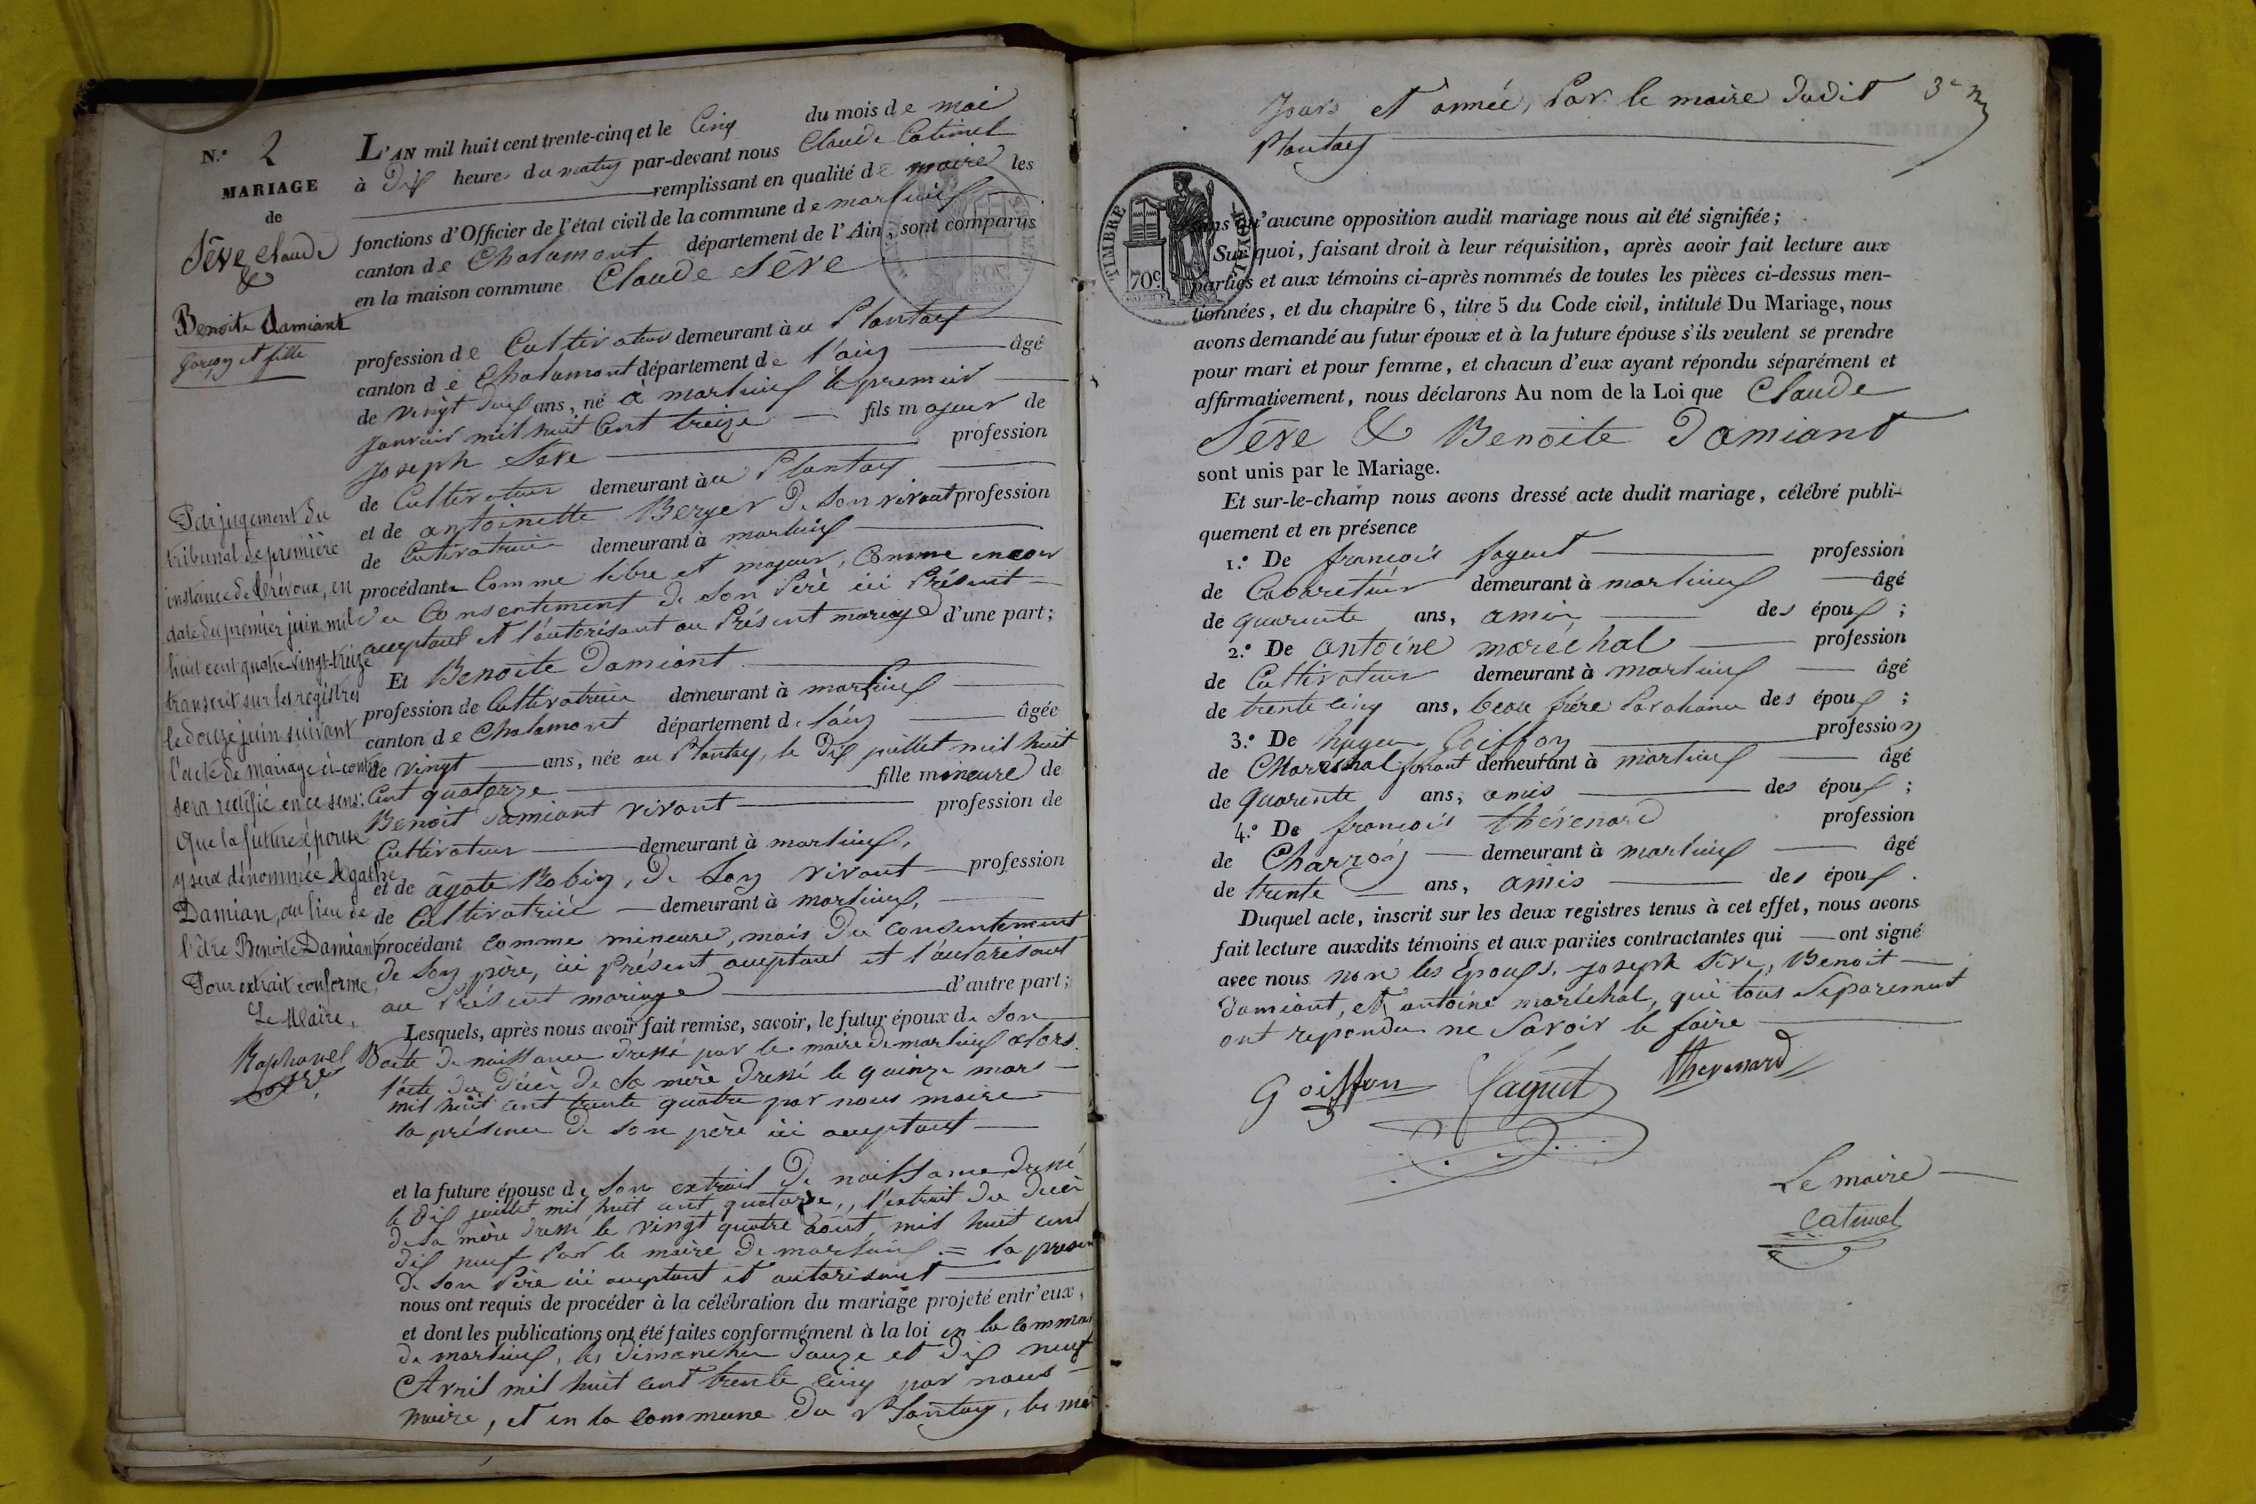 N.° 2
MARIAGE
de
Sêve Claude
&
Benoite Damiant
garçon et fille
Par jugement du
tribunal de première
instance de Trévoux, en
date du premier juin mil
huit cent quatre-vingt-treize
transcrit sur les registres
le douze juin suivant
l'acte de mariage ci-contre
sera rectifié en ce sens:
Que la future épouse
y sera dénommée Agathe
Damian, au lieu de
l'être Benoite Damiant
Pour extrait conforme,
Le Maire,
L'AN mil huit cent trente-cinq et le Cinq du mois de mai
à Dix heures du matin par-devant nous Claude Catimel
remplissant en qualité de maire les
fonctions d'Officier de l'état civil de la commune de marlieux
canton de Chalamont département de l'Ain, sont comparus
en la maison commune Claude Sêve
profession de Cultivateur demeurant à au Plantay
canton de Chalamont département de l'ain âgé
de vingt deux ans, né à marlieux le premier
janvier mil huit Cent treize fils majeur de
Joseph Seve profession
de Cultivateur demeurant à au Plantay
et de antoinette Berger De Son vivant profession
de Cultivatrice demeurant à marlieux
procédant Comme libre et majeur, Comme encore
du Consentement de son Père ici Présent
acceptant et l'autorisant au Présent mariage d'une part;
Et Benoite Damiant
profession de Cultivatrice demeurant à marlieux
canton de Chalamont département de l'ain âgée
de vingt ans, née au Plantay, le Dix juillet mil huit
Cent quatorze fille mineure de
Benoit Damiant vivant profession de
Cultivateur demeurant à marlieux,
et de âgate Robin, de Son vivant profession
de Cultivatrice demeurant à marlieux,
procédant comme mineure, mais Du Consentement
de Son père, ici Présent acceptant et l'autorisant
au Présent mariage d'autre part;
Lesquels, après nous avoir fait remise, savoir, le futur époux de Son
acte de naissance dressé par le maire de marlieux alors
l'acte du Décè de Sa mère dressé le quinze mars
mil huit cent trente quatre par nous maire
la présence de son père ici acceptant
et la future épouse de son extrait de naissance dressé
le dix juillet mil huit cent quatorze, l'extrait du décè
de sa mère dressé le vingt quatre août, mil huit cent
dix neuf Par le maire de marlieux = la presence
de son Père ici acceptant et autorisant
nous ont requis de procéder à la célébration du mariage projeté entr'eux,
et dont les publications ont été faites conformément à la loi en la commune
de marlieux, les dimanches douze et dix neuf
Avril mil huit cent trente cinq par nous
maire, et en la commune du Plantay, les mê
Jours et année, Par le maire dudit
Plantay
TIMBRE ROYAL
70c
sans qu'aucune opposition audit mariage nous ait été signifiée;
Sur quoi, faisant droit à leur réquisition, après avoir fait lecture aux
parties et aux témoins ci-après nommés de toutes les pièces ci-dessus men-
tionnées, et du chapitre 6, titre 5 du Code civil, intitulé Du Mariage, nous
avons demandé au futur époux et à la future épouse s'ils veulent se prendre
pour mari et pour femme, et chacun d'eux ayant répondu séparément et
affirmativement, nous déclarons Au nom de la Loi que Claude
Sêve & Benoite Damiant
sont unis par le Mariage.
Et sur-le-champ nous avons dressé acte dudit mariage, célébré publi-
quement et en présence
1.° De françois fayet profession
de Cabaretier demeurant à marlieux âgé
de quarente ans, amis des époux;
2.° De antoine maréchal profession
de Cultivateur demeurant à marlieux âgé
de trente cinq ans, beau frère des époux;
3.° De Goiffon profession
de Marèchal ferrant demeurant à marlieux âgé
de quarente ans, amis des époux;
4.° De françois thévenard profession
de Charron demeurant à marlieux âgé
de trente ans, amis des époux.
Duquel acte, inscrit sur les deux registres tenus à cet effet, nous avons
fait lecture auxdits témoins et aux parties contractantes qui ont signé
avec nous non les époux, joseph Seve, Benoit
Damiant, et antoine maréchal, qui tous séparement
ont repondu ne savoir le faire
Goiffon Thevenard
Le maire
Catimel